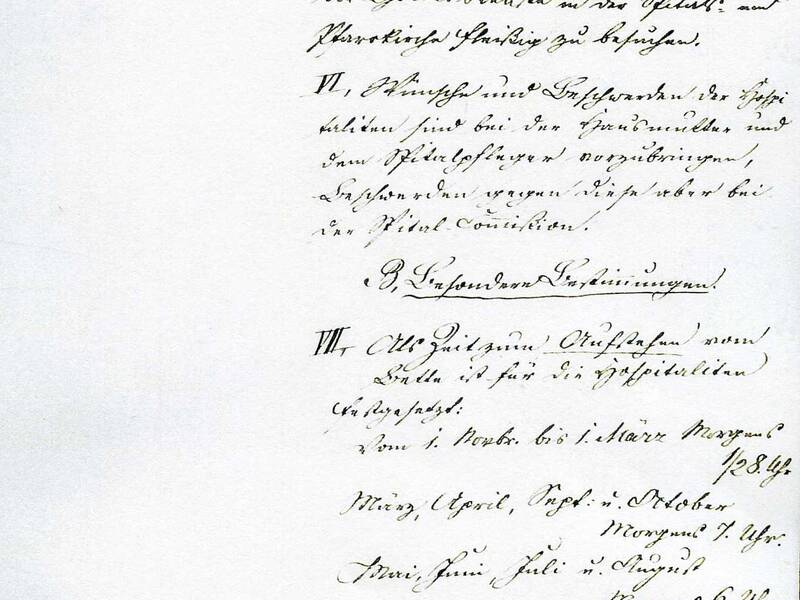 in der Spitals- und
Pfarrkirche fleißig zu besuchen.
VI, Wünsche und Beschwerden der Hospi
taliten sind bei der Hausmutter und
dem Spitalpfleger vorzubringen,
Beschwerden gegen diese aber bei
der Spital-Com̅ißion.
B, Besondere Bestim̅ungen.
VII, Als Zeit zum Aufstehen vom
Bette ist für die Hospitaliten
festgesetzt:
Vom 1. Novbr. bis 1. März Morgens
1/2 8. Uhr
März, April, Sept: u. October
Morgens 7. Uhr.
Mai, Juni, Juli u. August
6 Uhr